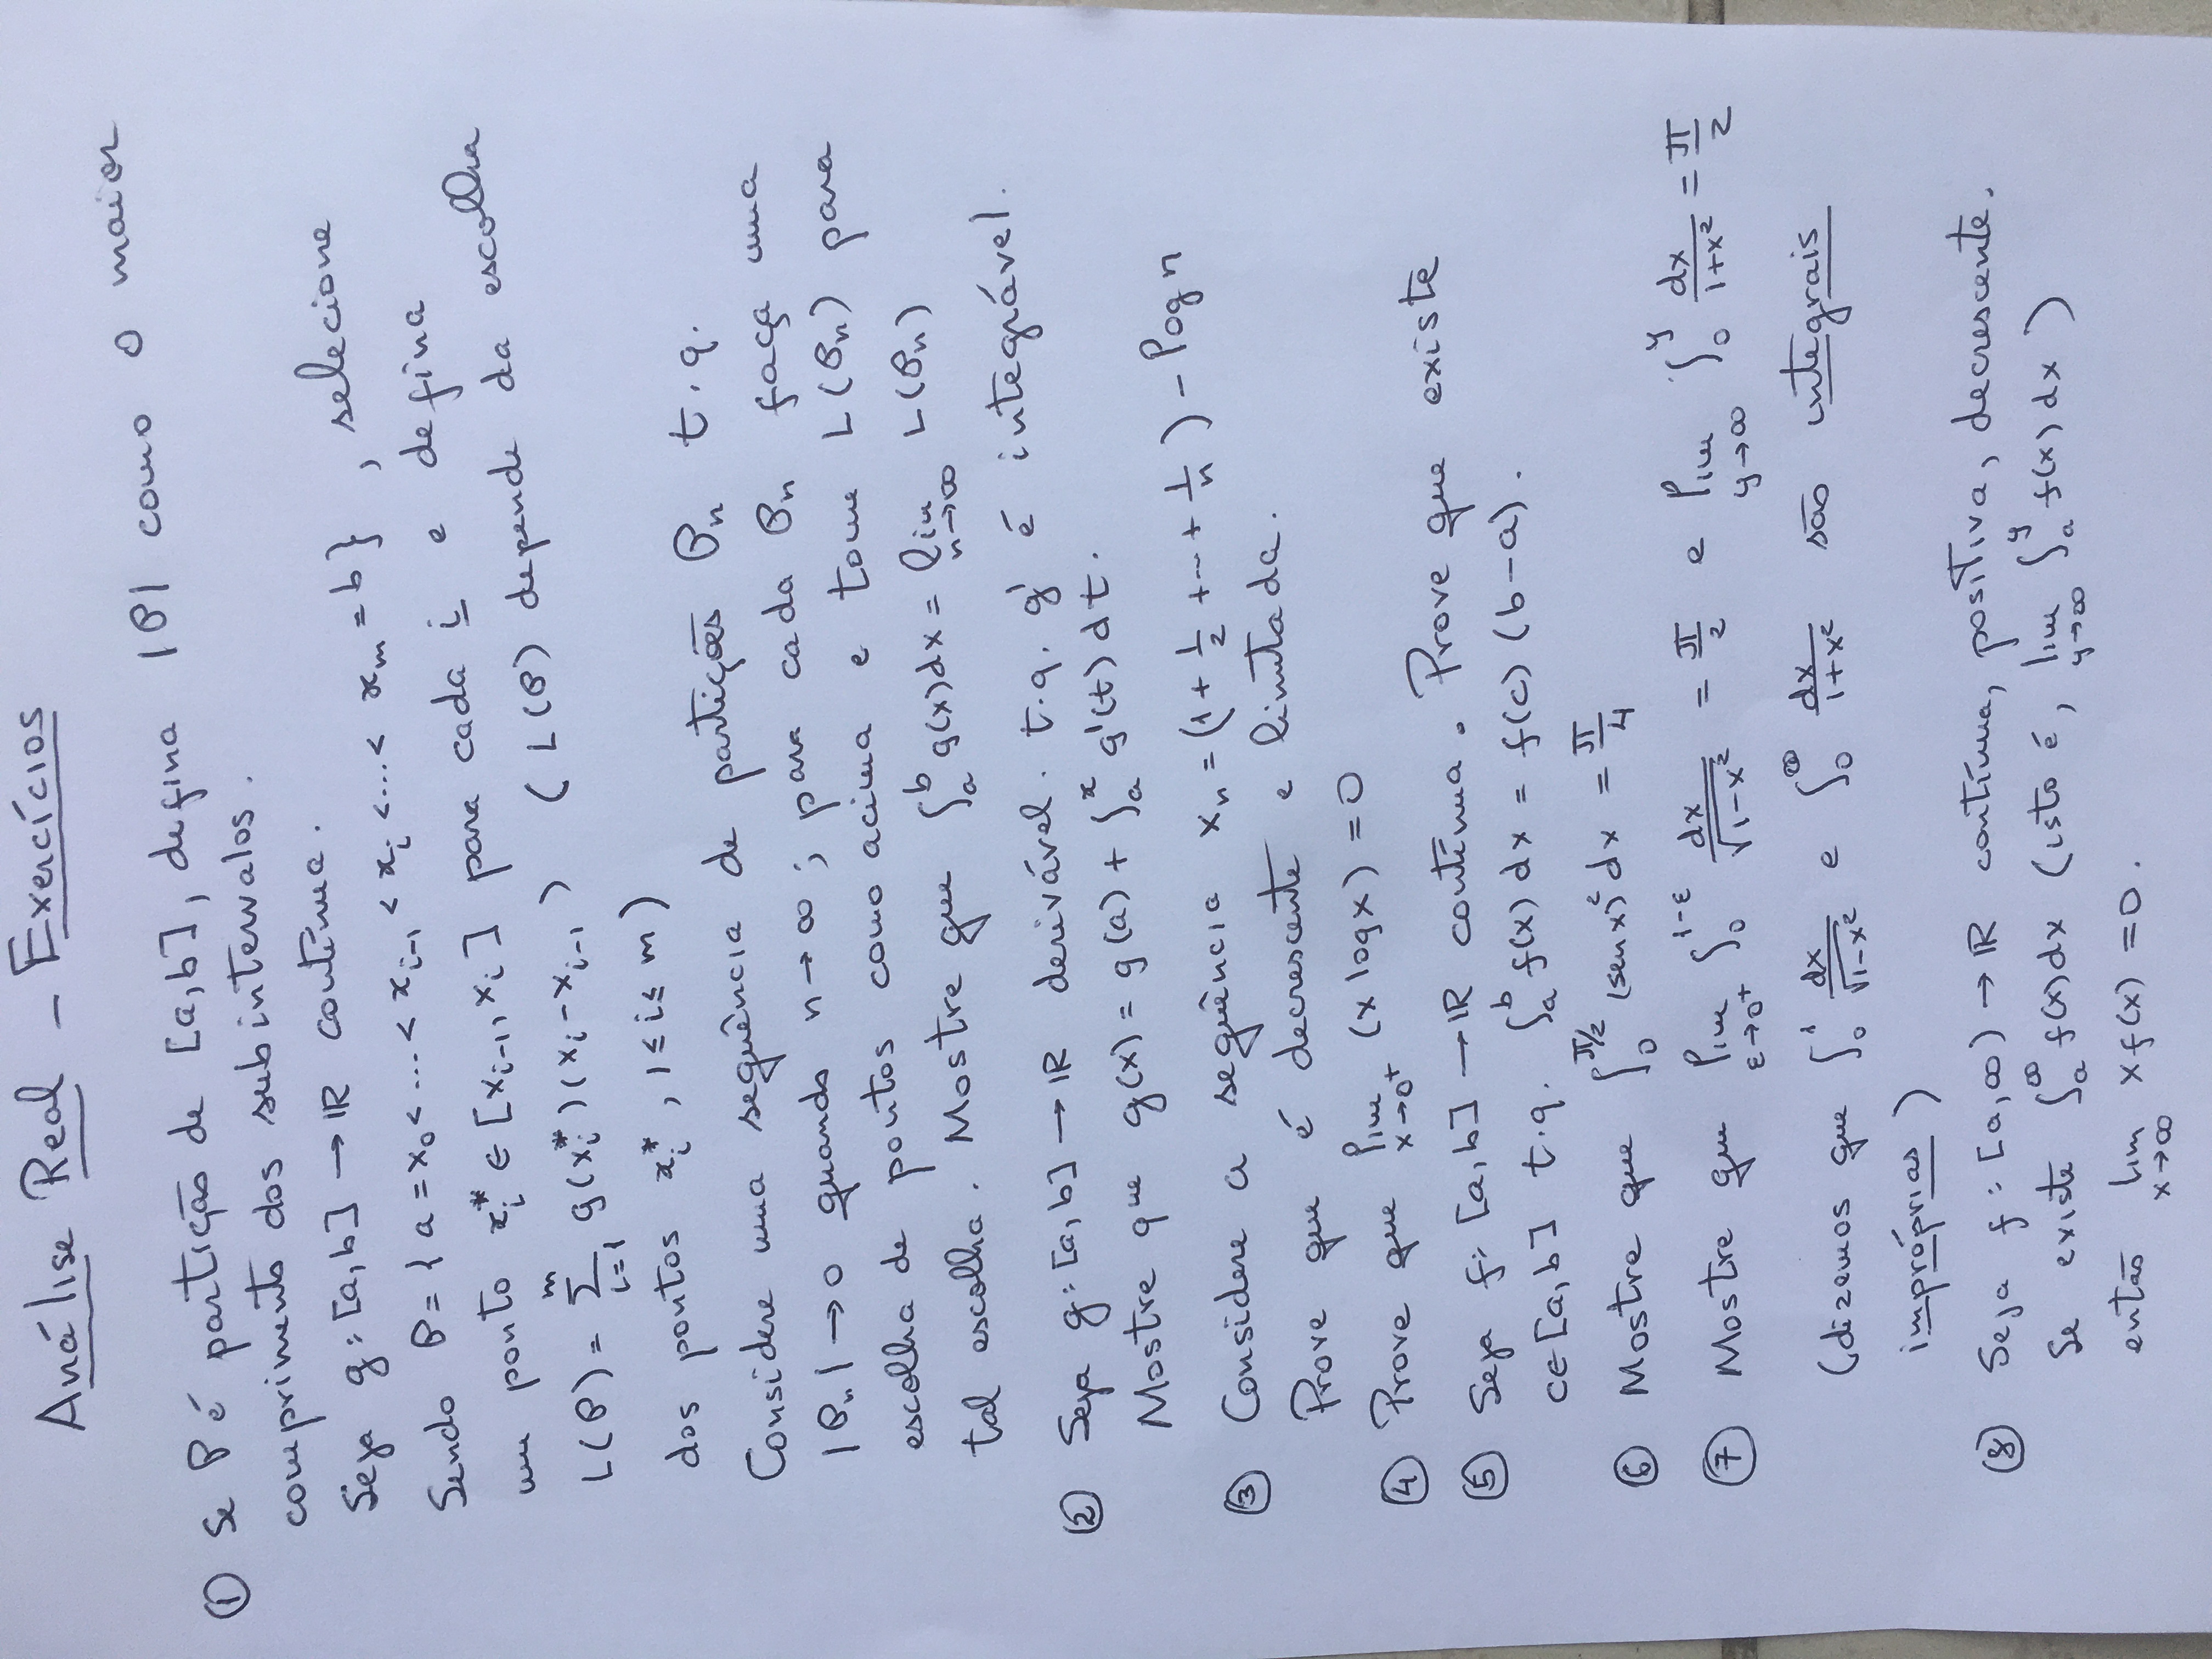 Análise Real – Exercícios
① Se P é partição de [a,b], defina |P| como o maior
comprimento dos subintervalos.
Seja g:[a,b]→ℝ contínua.
Sendo P={a=x₀<...<x_{i-1}<x_i<...<x_m=b}, selecione
um ponto x_i^*∈[x_{i-1},x_i] para cada i e defina
L(P)=∑_{i=1}^m g(x_i^*)(x_i-x_{i-1}) (L(P) depende da escolha
dos pontos x_i^*, 1≤i≤m)
Considere uma sequência de partições P_n t.q.
|P_n|→0 quando n→∞; para cada P_n faça uma
escolha de pontos como acima e tome L(P_n) para
tal escolha. Mostre que ∫_a^b g(x)dx = lim_{n→∞} L(P_n)
② Seja g:[a,b]→ℝ derivável. t.q. g' é integrável.
Mostre que g(x)=g(a)+∫_a^x g'(t)dt.
③ Considere a sequência x_n=(1+1/2+...+1/n)-log n
Prove que é decrescente e limitada.
④ Prove que lim_{x→0⁺} (x log x)=0
⑤ Seja f:[a,b]→ℝ contínua. Prove que existe
c∈[a,b] t.q. ∫_a^b f(x)dx=f(c)(b-a).
⑥ Mostre que ∫_0^{π/2} (sen x)²dx=π/4
⑦ Mostre que lim_{ε→0⁺} ∫_0^{1-ε} dx/√(1-x²) = π/2 e lim_{y→∞} ∫_0^y dx/(1+x²) = π/2
(dizemos que ∫_0^1 dx/√(1-x²) e ∫_0^∞ dx/(1+x²) são integrais
impróprias)
⑧ Seja f:[a,∞)→ℝ contínua, positiva, decrescente.
Se existe ∫_a^∞ f(x)dx (isto é, lim_{y→∞} ∫_a^y f(x)dx)
então lim_{x→∞} xf(x)=0.